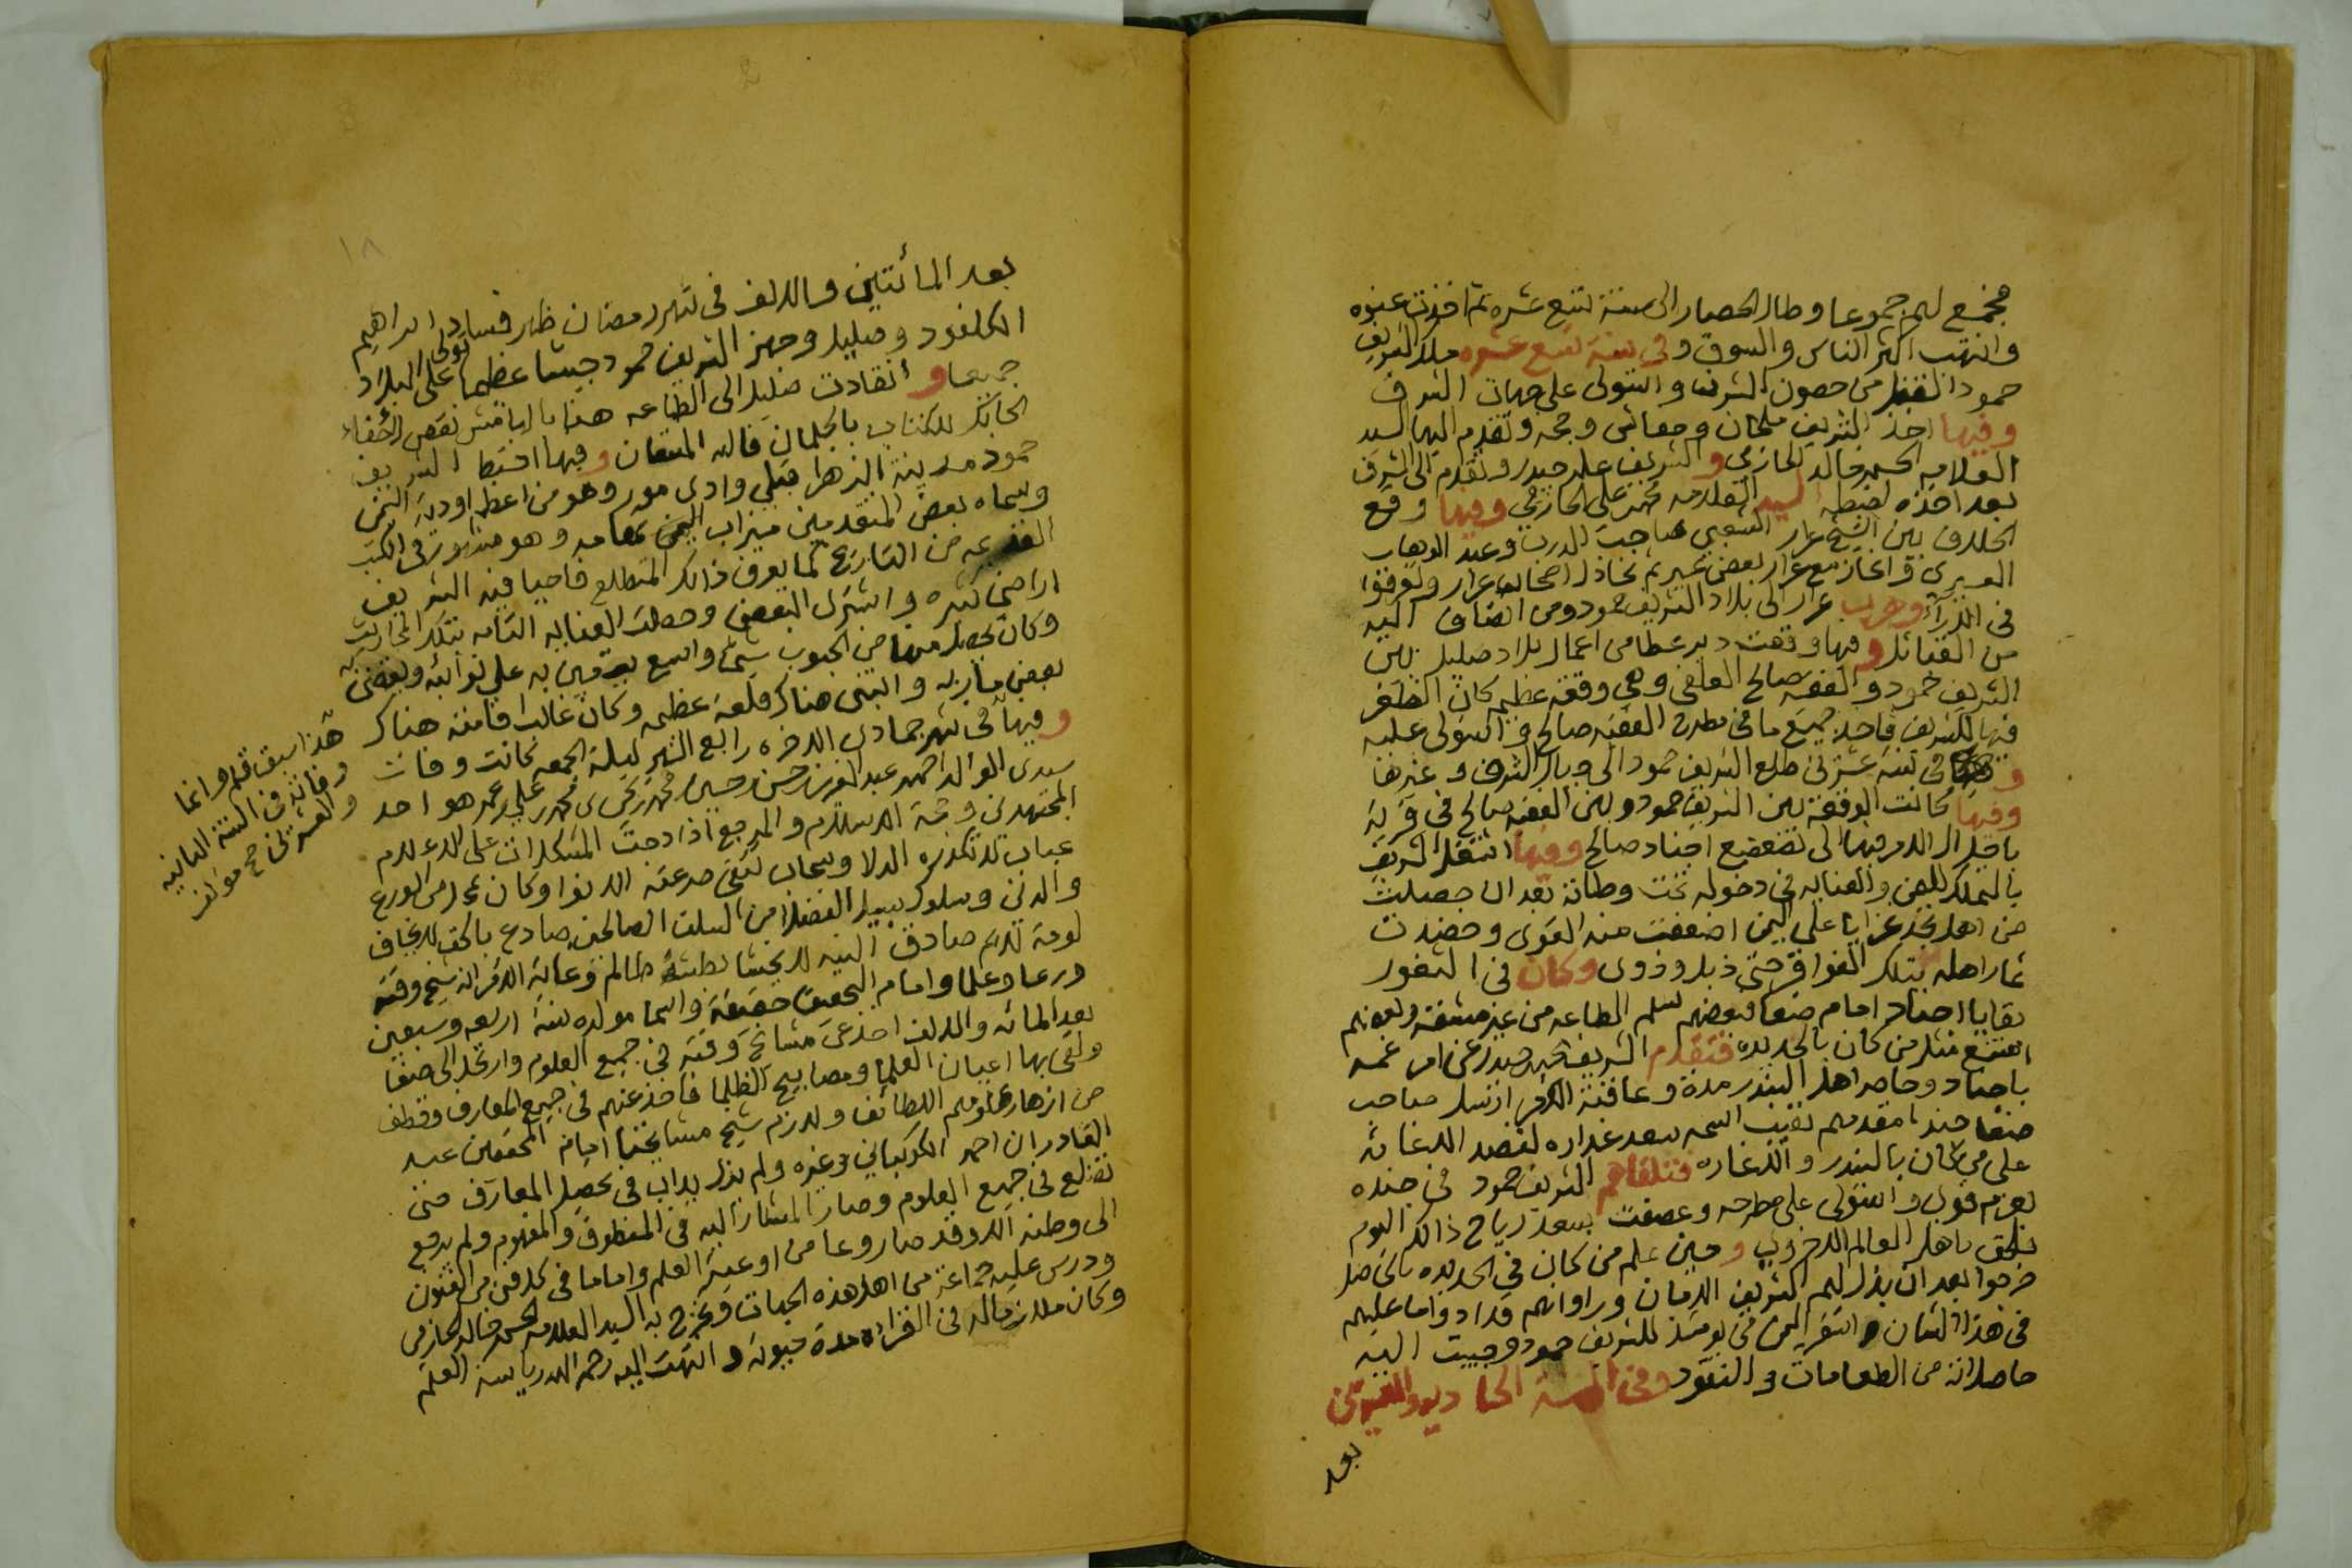 فجمع لهم جموعا وطال الحصار الى سنة تسع عشره ثم اخذت عنوه
وانتهب اكثر الناس والسوق وفي سنة تسع عشره ملك الشريف
حمود القفل من حصون الشرف واستولى على جهات الشرف
وفيها اخذ الشريف ملحان وحفاش وحجه وتقدم اليها السيد
العلامه الحسن خالد الحازمي والشريف علي حيدر وتقدم الى الشرف
بعد اخذه لضبطه السيد العلامه محمد علي الحازمي وفيها وقع
الخلاف بين الشيخ عرار الشعبي صاحب الدرب وعبد الوهاب
العسيري وانحاز مع عرار بعض عسير ثم تخاذل اصحاب عرار وتفرقوا
في الآراء وهرب عرار الى بلاد الشريف حمود ومن انضاف اليه
من القبائل وفيها وقعت دير عطا من اعمال بلاد صليل بين
الشريف حمود والفقيه صالح العلفي وهي وقعه عظيمه كان الظفر
فيها للشريف فاخذ جميع ما في مطرح الفقيه صالح واستولى عليه
و في سنة عشرين طلع الشريف حمود الى جبال الشرف وغيرها
وفيها كانت الوقعة بين الشريف حمود وبين الفقيه صالح في قرية
باجل آل الامر فيها الى تضعضع اجناد صالح وفيها استقل الشريف
بالتملك لليمن والعنايه في دخوله تحت وطاته بعد ان حصلت
من اهل نجد غزايا على اليمن اضعفت منه القوى وحصدت
ثمار اهله بتلك الفواقر حتى ذبل وذوى وكان في الثغور
بقايا اجناد امام صنعا فبعضهم سلم الطاعه من غير مشقة وبعضهم
امتنع مثل من كان بالحديده فتقدم الشريف حيدر عن امر عمه
باجناد وحاصر اهل البندر مدة وعاقبة الامر ارسل صاحب
صنعا جندا مقدمهم نقيب اسمه سعد غداره لقصد الاغاثه
على من كان بالبندر والاغاره فتلقاهم الشريف حمود في جنده
بعزم قوي واستولى على مطرحه وعصفت بسعد رياح ذالك اليوم
فلحق باهل العالم الاخروي وحين علم من كان في الحديده بالحاصل
خرجوا بعد ان بذل لهم الشريف الامان وراوا انهم قد ادوا ما عليهم
في هذا الشان واستقر اليمن من يومئذ للشريف حمود وجبيت اليه
حاصلاته من الطعامات والنقود وفي السنة الحاديه والعشرين
بعد
١٨
بعد المائتين والالف في شهر رمضان ظهر فساد ابراهيم
الكلفود وصليل وجهز الشريف حمود جيشا عظيما تولى على البلاد
جميعها وانقادت صليل الى الطاعه
الحابك للكتاب بالجلمان قاله المتقان وفيها اختط الشريف
حمود مدينة الزهرا قبلي وادي مور وهو من اعظم اودية اليمن
وسماه بعض المتقدمين ميزاب اليمن تهامه وهو مذكور في الكتب
القديمه من التاريخ كما يعرف ذالك المتطلع فاحيا فيه الشريف
اراضي كثيره واشترى البعض وحصلت العنايه التامه بتلك المحارث
وكان يحصل منها من الحبوب شيء واسع يستعين به على نوائبه ويقضي به
بعض مآربه وابتنى هناك قلعه عظيمه وكان غالب اقامته هناك
وفيها في شهر جمادى الاخره رابع الشهر ليلة الجمعه كانت وفاة
سيدي الوالد احمد عبد العزيز حسن حسين محمد محمد علي عمر هو احد
المجتهدين وحجة الاسلام والمرجع اذا دجت المشكلات على الاعلام
عباب لا تكدره الدلا وسحاب تتقى صرعته الانوا وكان علم من الورع
والدين وسلوك سبيل الفضلا من السلف الصالحين صادع بالحق لا يخاف
لومة لايم صادق النيه لا يخشا بطشة ظالم وغاية الامر انه شيخ وقته
ورعا وعلما وامام التحقيق حقيقة واسما مولده سنة اربعه وسبعين
بعد المائه والالف اخذ عن مشائخ وقته في جميع العلوم وارتحل الى صنعا
ولقى بها اعيان العلما ومصابيح الظلما فاخذ عنهم في جميع المعارف وقطف
من ازهار علومهم اللطائف ولازم شيخ مشايخنا امام المحققين عبد
القادر بن احمد الكوكباني وغيره ولم يزل يداب في تحصيل المعارف حتى
تضلع في جميع العلوم وصار المشار اليه في المنطوق والمفهوم ولم يرجع
الى وطنه الا وقد صار وعا من اوعية العلم واماما في كل فن من الفنون
ودرس عليه جماعه من اهل هذه الجهات وتخرج به السيد العلامه الحسن خالد الحازمي
وكان ملازما له في القراءه مدة حيوته وانتهت اليه رحمه الله رياسة العلم
هذا سبق قلم وانما
وفاته في السنة الثانيه
والعشرين صح مؤلف